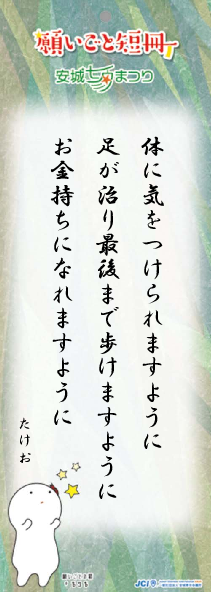 願いごと短冊
安城七夕まつり
体に気をつけられますように
足が治り最後まで歩けますように
お金持ちになれますように
たけお
JCI